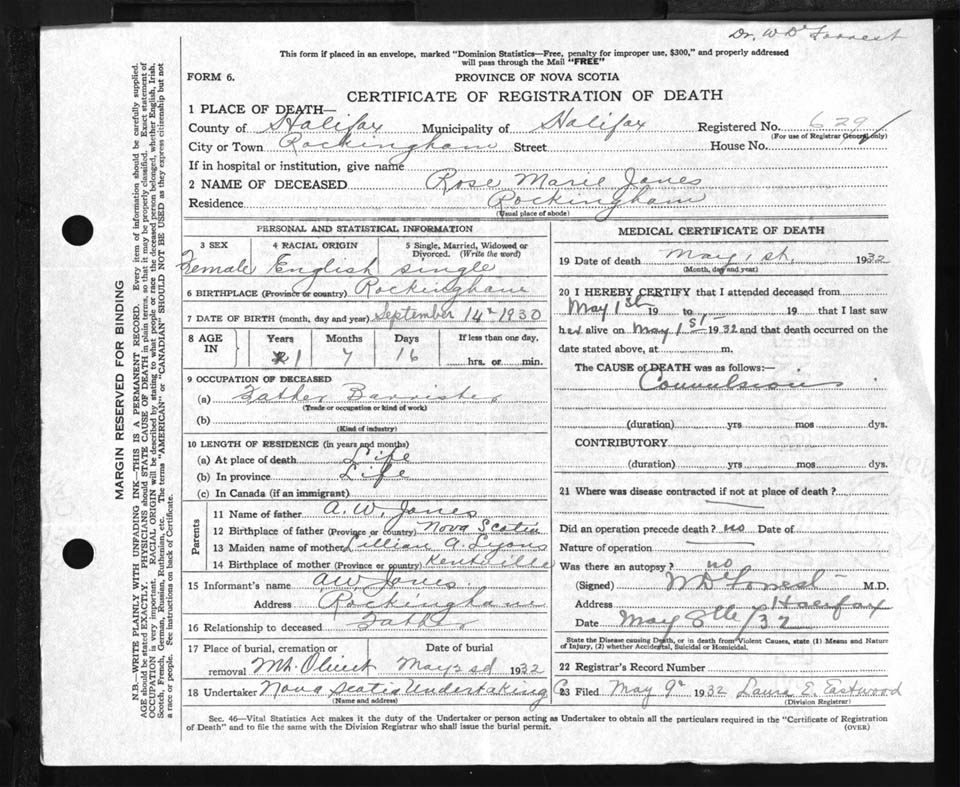 Dr. W D Forrest
This form if placed in an envelope, marked "Dominion Statistics—Free, penalty for improper use, $300," and properly addressed
will pass through the Mail "FREE"
FORM 6. PROVINCE OF NOVA SCOTIA
CERTIFICATE OF REGISTRATION OF DEATH
1 PLACE OF DEATH—
County of Halifax Municipality of Halifax Registered No. 629
(For use of Registrar General only)
City or Town Rockingham Street House No.
If in hospital or institution, give name
2 NAME OF DECEASED Rose Marie Jones
Residence Rockingham
(Usual place of abode)
PERSONAL AND STATISTICAL INFORMATION
3 SEX 4 RACIAL ORIGIN 5 Single, Married, Widowed or
Divorced. (Write the word)
Female English single
6 BIRTHPLACE (Province or country) Rockingham
7 DATE OF BIRTH (month, day and year) September 14th 1930
8 AGE IN Years Months Days If less than one day,
1 7 16 hrs. or min.
9 OCCUPATION OF DECEASED
(a) Father Barrister
(Trade or occupation or kind of work)
(b)
(Kind of industry)
10 LENGTH OF RESIDENCE (in years and months)
(a) At place of death Life
(b) In province Life
(c) In Canada (if an immigrant)
Parents
11 Name of father A. W. Jones
12 Birthplace of father (Province or country) Nova Scotia
13 Maiden name of mother Lillian A. Lyons
14 Birthplace of mother (Province or country) Kentville
15 Informant's name AW Jones
Address Rockingham
16 Relationship to deceased Father
17 Place of burial, cremation or Date of burial
removal Mt. Olivet May 2nd 1932
18 Undertaker Nova Scotia Undertaking Co
(Name and address)
MEDICAL CERTIFICATE OF DEATH
19 Date of death May 1st. 1932
(Month, day and year)
20 I HEREBY CERTIFY that I attended deceased from
May 1st 19 to 19 that I last saw
her alive on May 1st 1932 and that death occurred on the
date stated above, at m.
The CAUSE of DEATH was as follows:—
Convulsions
(duration) yrs mos dys.
CONTRIBUTORY
(duration) yrs mos dys.
21 Where was disease contracted if not at place of death?
Did an operation precede death? no Date of
Nature of operation
Was there an autopsy? no
(Signed) W D Forrest M.D.
Address Halifax
Date May 8th / 32
State the Disease causing Death, or in death from Violent Causes, state (1) Means and Nature
of Injury, (2) whether Accidental, Suicidal or Homicidal.
22 Registrar's Record Number
23 Filed May 9th 1932 Laura E. Eastwood
(Division Registrar)
Sec. 46—Vital Statistics Act makes it the duty of the Undertaker or person acting as Undertaker to obtain all the particulars required in the "Certificate of Registration
of Death" and to file the same with the Division Registrar who shall issue the burial permit. (OVER)
MARGIN RESERVED FOR BINDING
N.B.—WRITE PLAINLY WITH UNFADING INK—THIS IS A PERMANENT RECORD. Every item of information should be carefully supplied.
AGE should be stated EXACTLY. PHYSICIANS should STATE CAUSE OF DEATH in plain terms, so that it may be properly classified. Exact statement of
OCCUPATION is very important. RACIAL ORIGIN will be described by stating to what people or race the deceased person belonged, whether English, Irish,
Scotch, French, German, Russian, Ruthenian, etc. The terms "AMERICAN" or "CANADIAN" SHOULD NOT BE USED as they express citizenship but not
a race or people. See instructions on back of Certificate.